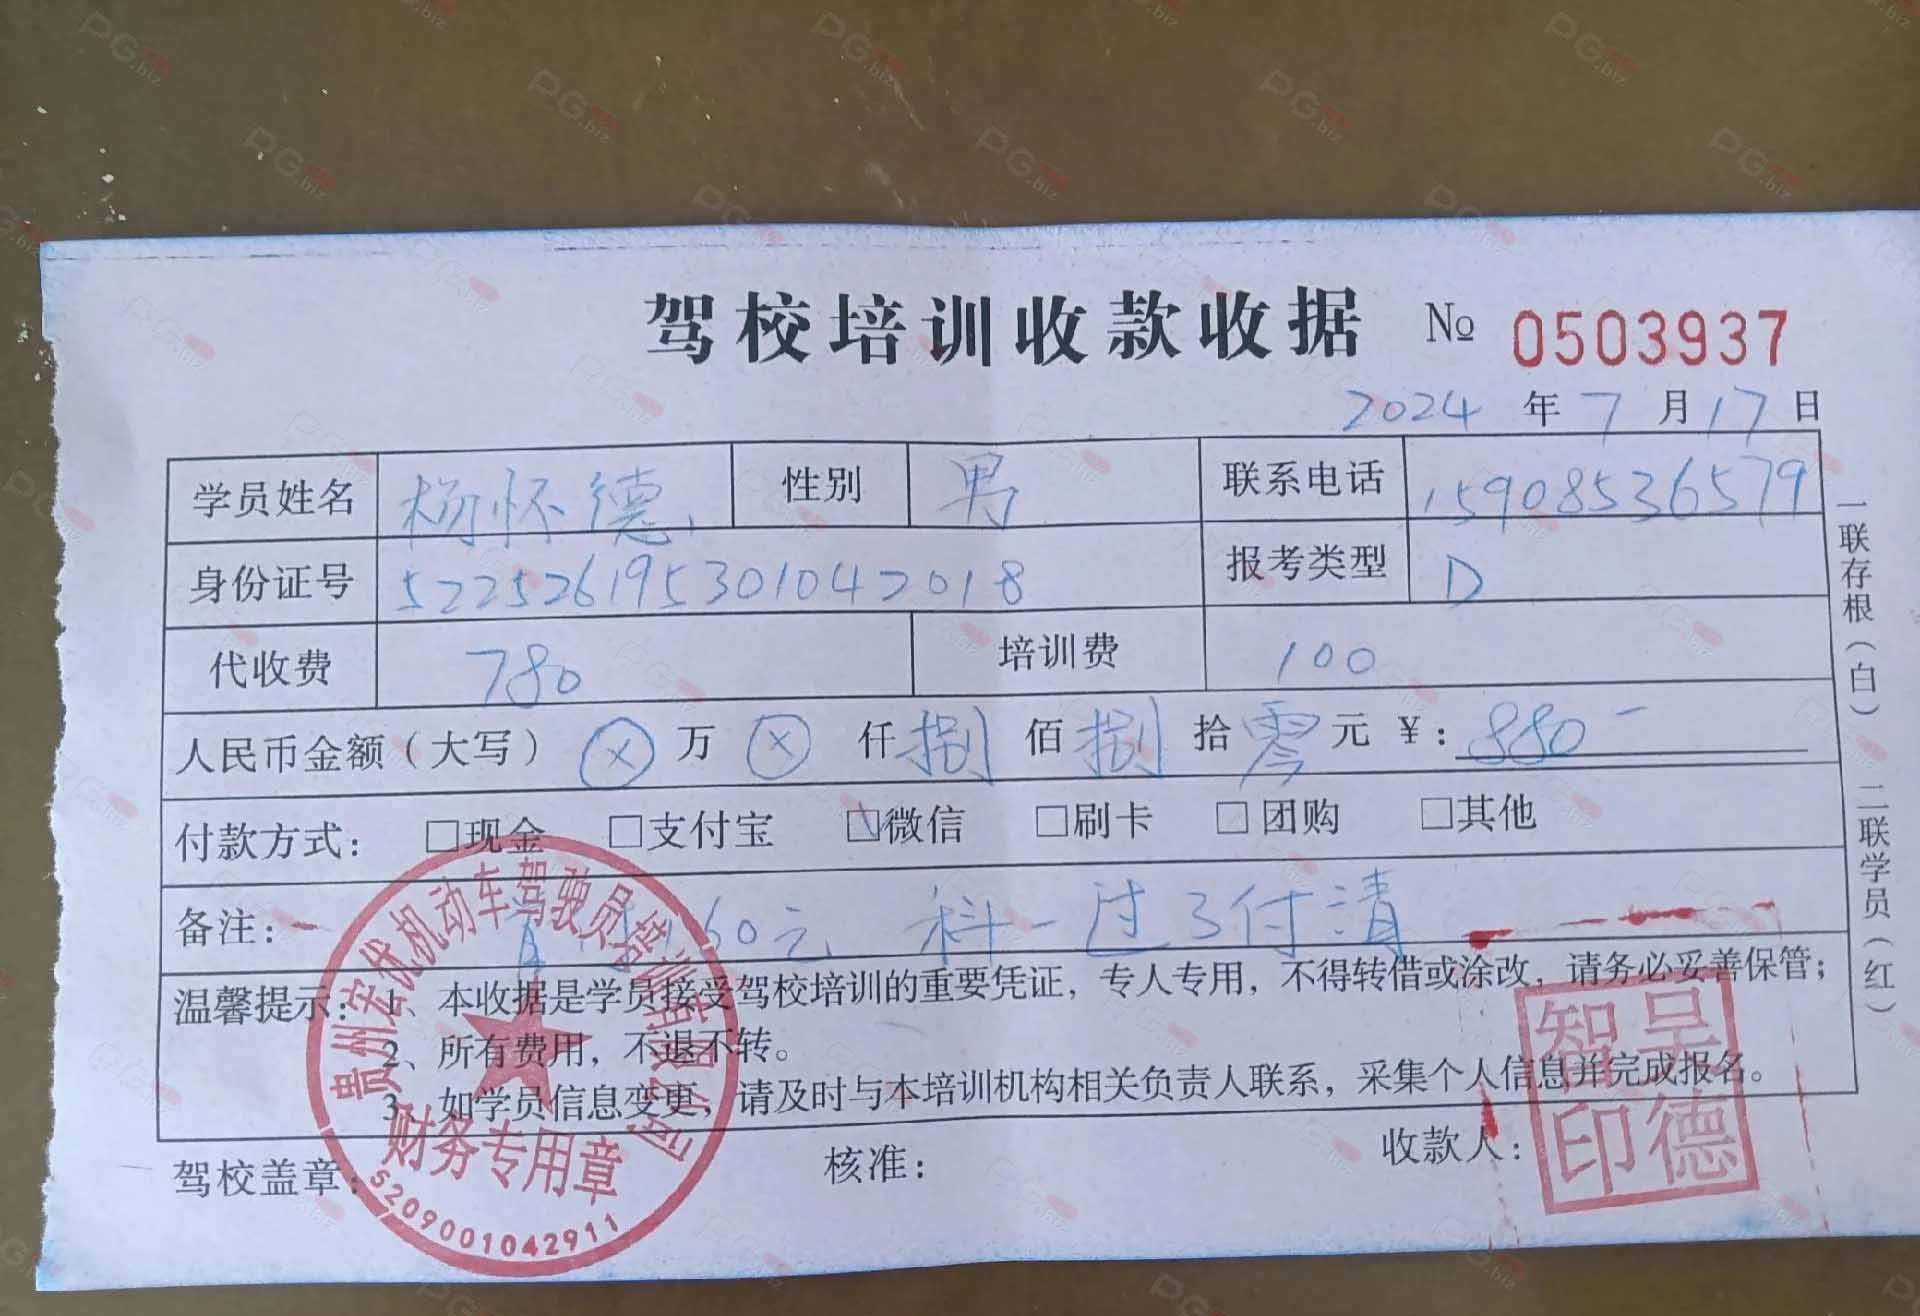 驾校培训收款收据 № 0503937
2024 年 7 月 17 日
学员姓名 杨怀德 性别 男 联系电话 15908536579
身份证号 522526195301042018 报考类型 D
代收费 780 培训费 100
人民币金额（大写） ⊗ 万 ⊗ 仟 捌 佰 捌 拾 零 元 ¥：880-
付款方式： □现金 □支付宝 ☑微信 □刷卡 □团购 □其他
备注： 60元 科一过了付清
温馨提示：1、本收据是学员接受驾校培训的重要凭证，专人专用，不得转借或涂改，请务必妥善保管；
2、所有费用，不退不转。
3、如学员信息变更，请及时与本培训机构相关负责人联系，采集个人信息并完成报名。
驾校盖章： 核准： 收款人：
一联存根（白） 二联学员（红）
贵州安优机动车驾驶员培训有限公司
财务专用章
5209001042911
智呈
印德
PG.biz